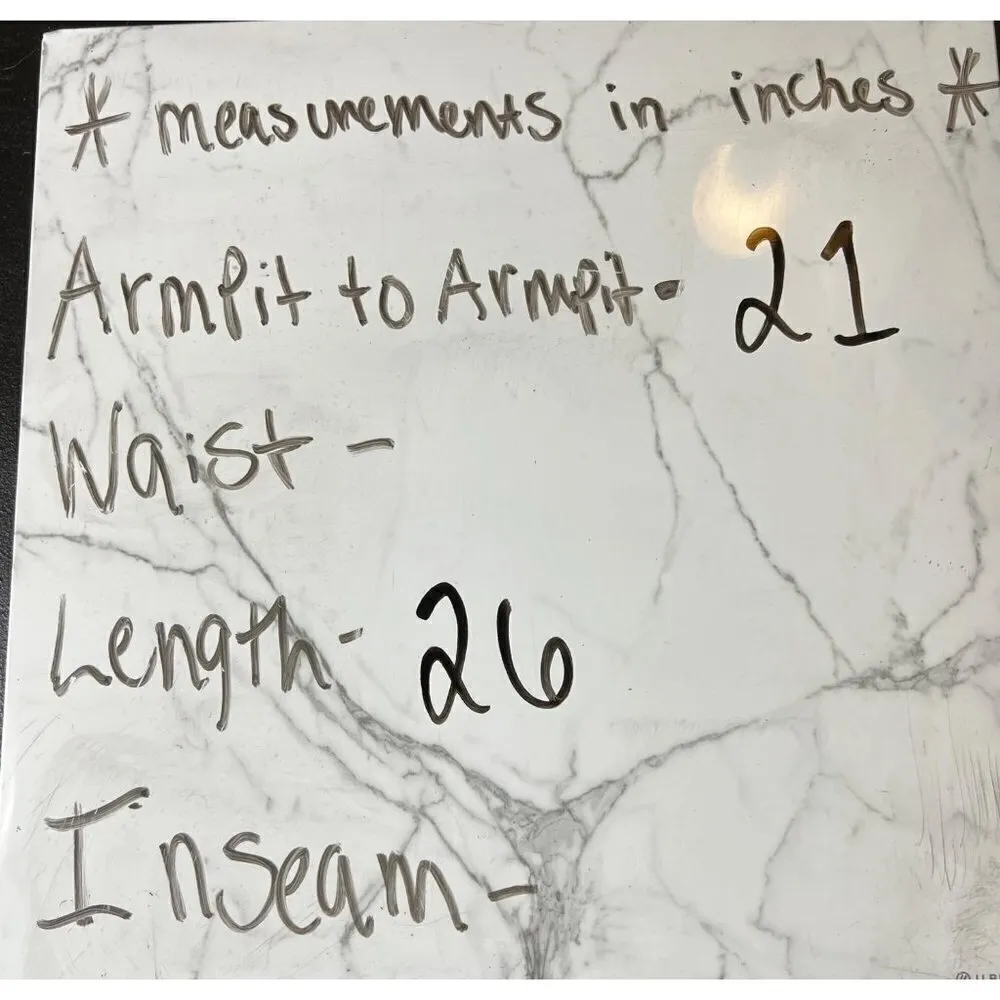 * measurements in inches *
Armpit to Armpit - 21
Waist -
Length - 26
Inseam -